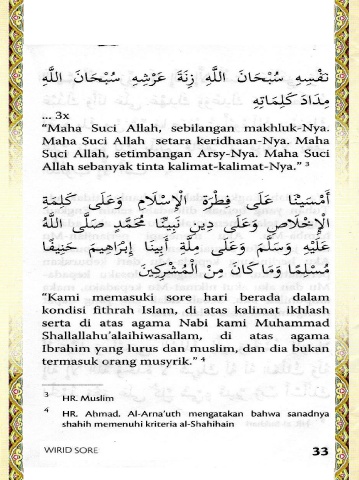 نَفْسِهِ سُبْحَانَ اللَّهِ زِنَةَ عَرْشِهِ سُبْحَانَ اللَّهِ
مِدَادَ كَلِمَاتِهِ
... 3x
“Maha Suci Allah, sebilangan makhluk-Nya.
Maha Suci Allah setara keridhaan-Nya. Maha
Suci Allah, setimbangan Arsy-Nya. Maha Suci
Allah sebanyak tinta kalimat-kalimat-Nya.” 3
أَمْسَيْنَا عَلَى فِطْرَةِ الْإِسْلَامِ وَعَلَى كَلِمَةِ
الْإِخْلَاصِ وَعَلَى دِينِ نَبِيِّنَا مُحَمَّدٍ صَلَّى اللَّهُ
عَلَيْهِ وَسَلَّمَ وَعَلَى مِلَّةِ أَبِينَا إِبْرَاهِيمَ حَنِيفًا
مُسْلِمًا وَمَا كَانَ مِنْ الْمُشْرِكِينَ
“Kami memasuki sore hari berada dalam
kondisi fithrah Islam, di atas kalimat ikhlash
serta di atas agama Nabi kami Muhammad
Shallallahu’alaihiwasallam, di atas agama
Ibrahim yang lurus dan muslim, dan dia bukan
termasuk orang musyrik.” 4
3 HR. Muslim
4 HR. Ahmad. Al-Arna’uth mengatakan bahwa sanadnya
shahih memenuhi kriteria al-Shahihain
WIRID SORE 33